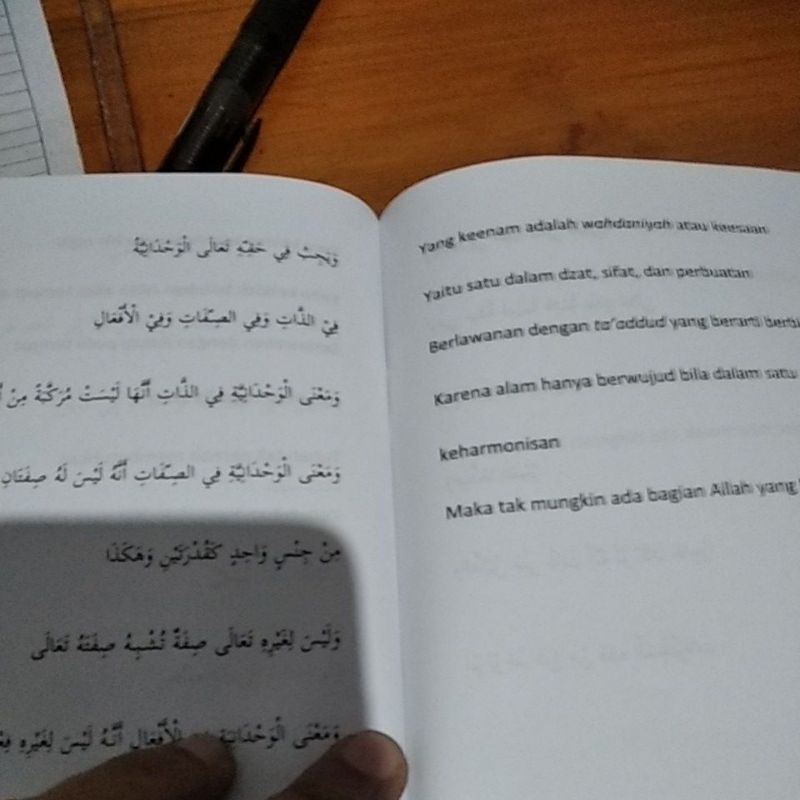 وَيَجِبُ فِي حَقِّهِ تَعَالَى الْوَحْدَانِيَّةُ
فِي الذَّاتِ وَفِي الصِّفَاتِ وَفِي الْأَفْعَالِ
وَمَعْنَى الْوَحْدَانِيَّةِ فِي الذَّاتِ أَنَّهَا لَيْسَتْ مُرَكَّبَةً مِنْ
وَمَعْنَى الْوَحْدَانِيَّةِ فِي الصِّفَاتِ أَنَّهُ لَيْسَ لَهُ صِفَتَانِ
مِنْ جِنْسٍ وَاحِدٍ كَقُدْرَتَيْنِ وَهَكَذَا
وَلَيْسَ لِغَيْرِهِ تَعَالَى صِفَةٌ تُشْبِهُ صِفَتَهُ تَعَالَى
وَمَعْنَى الْوَحْدَانِيَّةِ الْأَفْعَالِ أَنَّهُ لَيْسَ لِغَيْرِهِ
Yang keenam adalah wahdaniyah atau keesaan
Yaitu satu dalam dzat, sifat, dan perbuatan
Berlawanan dengan ta'addud yang berarti
Karena alam hanya berwujud bila dalam satu
keharmonisan
Maka tak mungkin ada bagian Allah yang